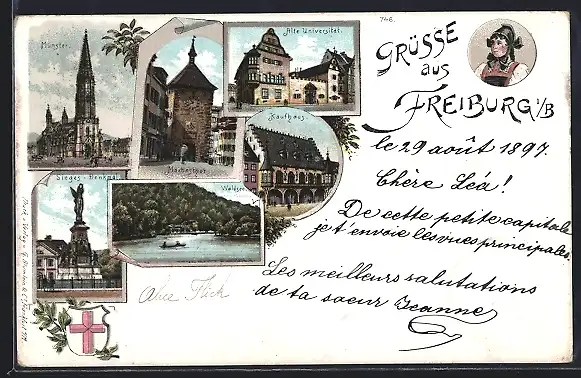 746.
Münster.
Alte Universität.
GRÜSSE
aus
FREIBURG i/B
Kaufhaus.
Sieges-Denkmal
Waldsee
le 29 août 1897.
Chère Léa!
De cette petite capitale
je t'envoie les vues principales.
Les meilleurs salutations
de ta soeur Jeanne